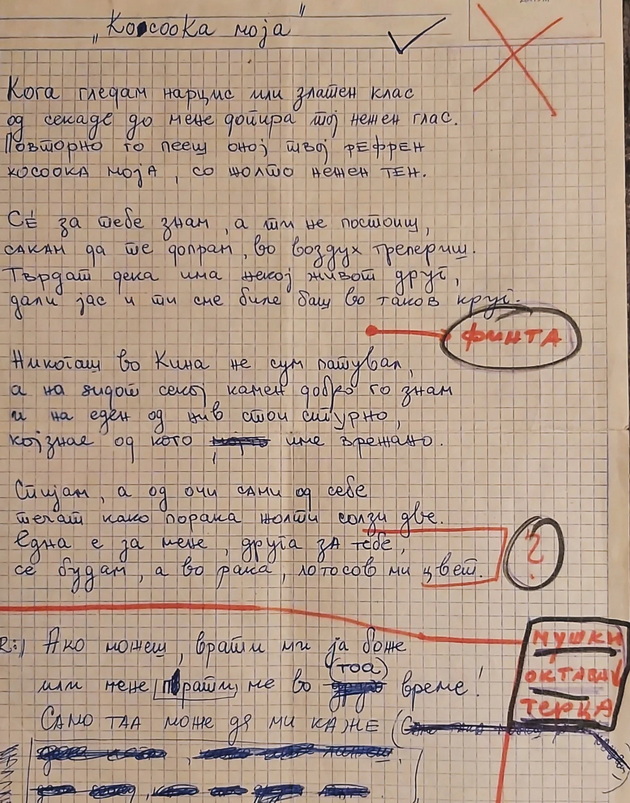 „Косоока моја"
Кога гледам нарцис или златен клас
од секаде до мене допира тој нежен глас.
Повторно го пееш оној твој рефрен
косоока моја, со жолто нежен тен.
Сѐ за тебе знам, а ти не постоиш,
сакам да те допрам, во воздух трепериш.
Тврдат дека има некој живот друг,
дали јас и ти сме биле баш во таков круг.
ФИНТА
Никогаш во Кина не сум патувал,
а на ѕидот секој камен добро го знам
и на еден од нив стои сигурно,
којзнае од кого име врежано.
Спијам, а од очи сами од себе
течат како порака жолти солзи две.
Една е за мене, друга за тебе,
?
се будам, а во рака, лотосов ми цвет.
МУШКИ
ОКТАВА
ТЕРКА
R:) Ако можеш, врати ми ја боже
(тоа)
или мене прати ме во време!
Само таа може да ми каже